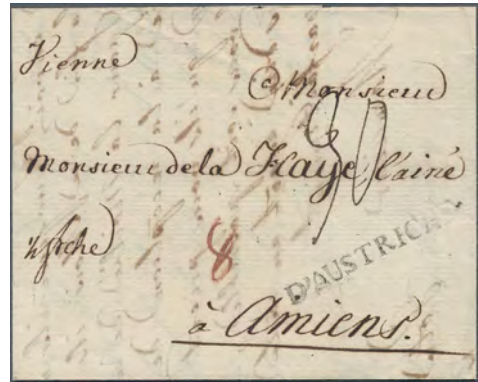 Vienne
a Monsieur
30
Monsieur de la Haye l'ainé
8
D'AUSTRICHE
à Amiens.